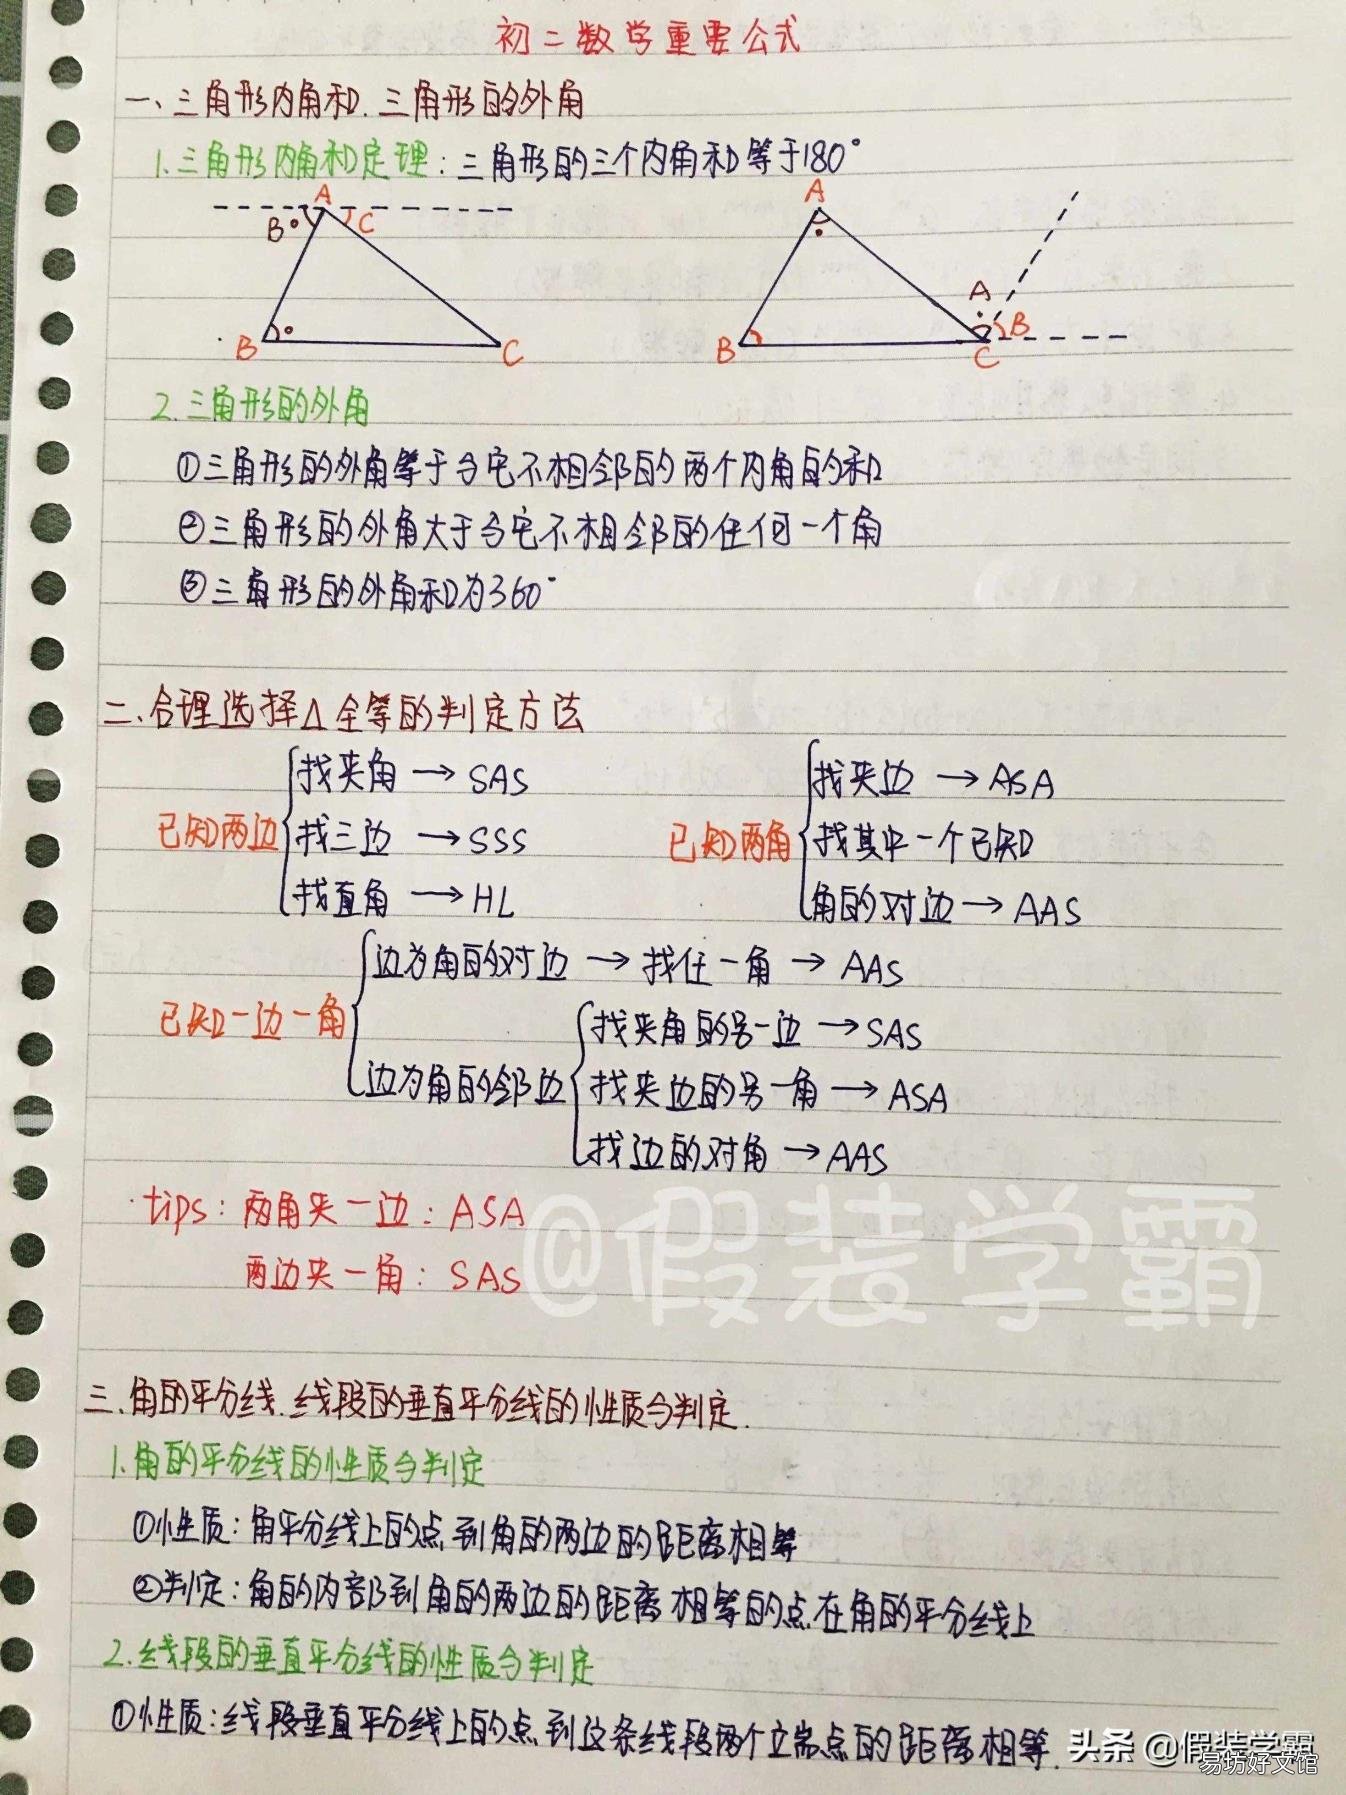 初二数学重要公式
一、三角形内角和、三角形的外角
1.三角形内角和定理:三角形的三个内角和等于180°
A
B
C
B
C
A
A
B
B
C
2.三角形的外角
①三角形的外角等于与它不相邻的两个内角的和
②三角形的外角大于与它不相邻的任何一个角
③三角形的外角和为360°
二、合理选择△全等的判定方法
已知两边
找夹角→SAS
找三边→SSS
找直角→HL
已知两角
找夹边→ASA
找其中一个已知
角的对边→AAS
已知一边一角
边为角的对边→找任一角→AAS
边为角的邻边
找夹角的另一边→SAS
找夹边的另一角→ASA
找边的对角→AAS
tips:两角夹一边:ASA
两边夹一角:SAS
@假装学霸
三、角的平分线、线段的垂直平分线的性质与判定.
1.角的平分线的性质与判定
①性质:角平分线上的点到角的两边的距离相等
②判定:角的内部到角的两边的距离相等的点在角的平分线上
2.线段的垂直平分线的性质与判定
①性质:线段垂直平分线上的点到这条线段两个端点的距离相等.
头条 @假装学霸
易坊好文馆